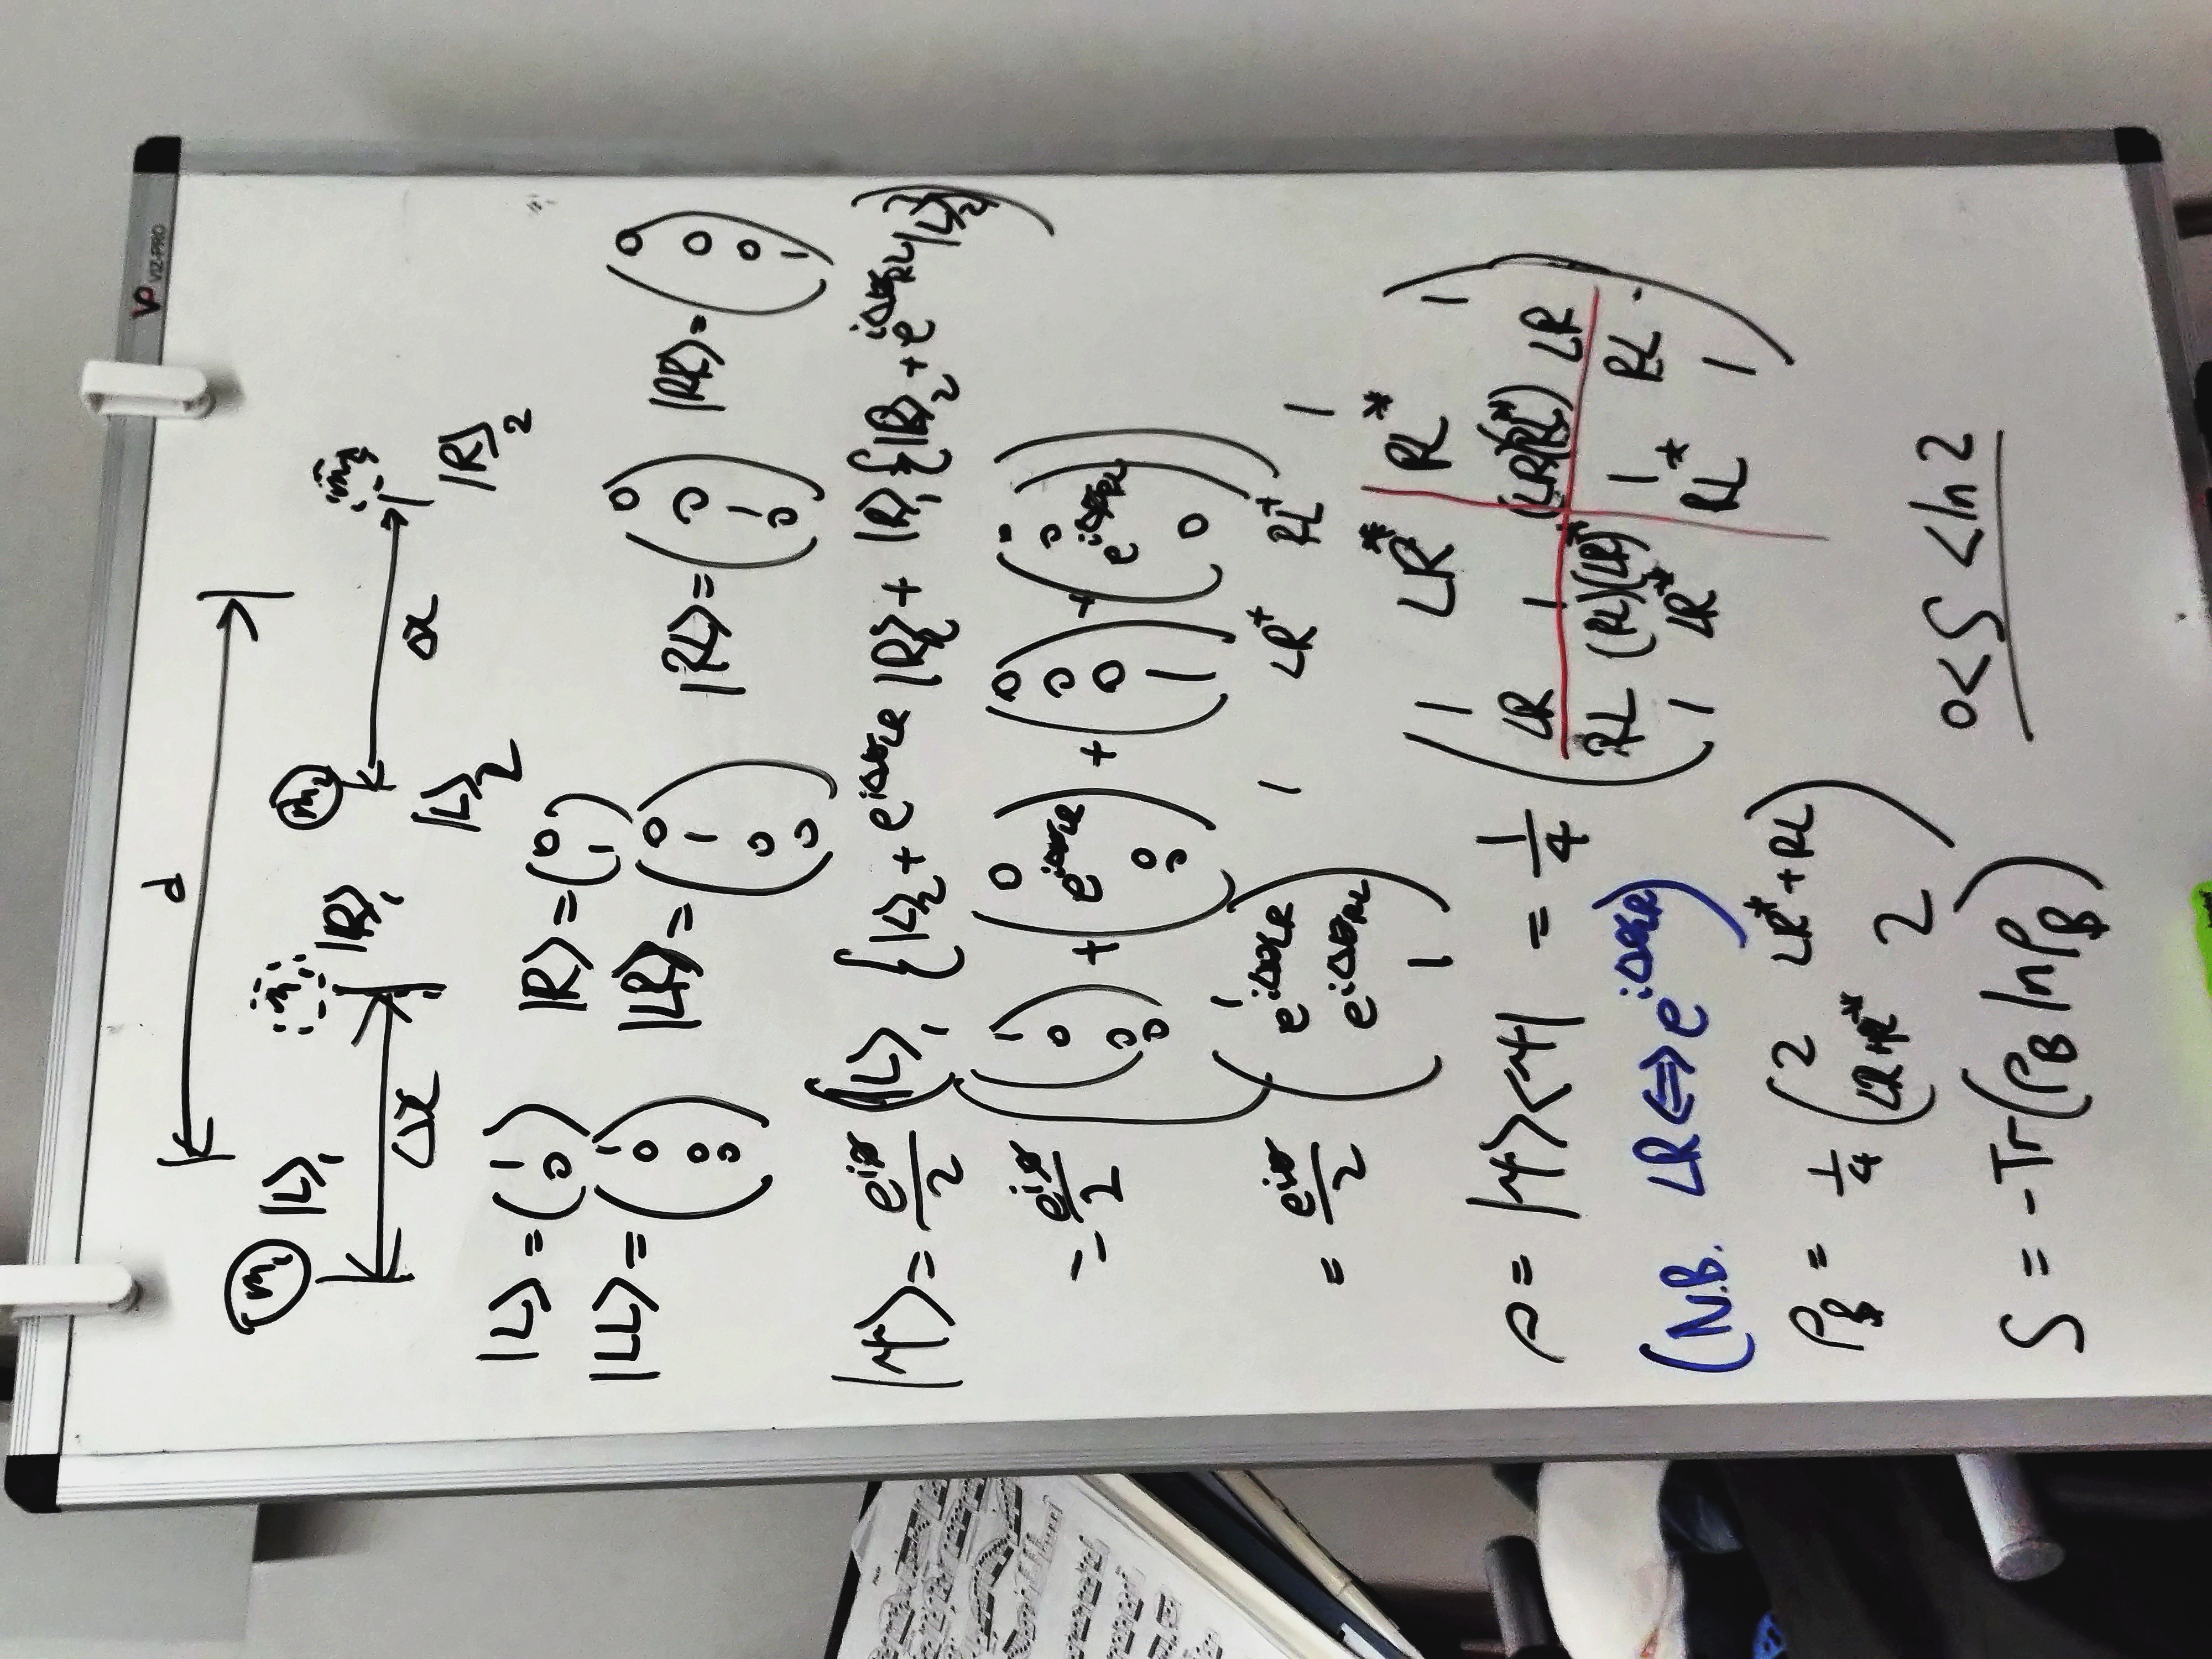 VP VIZ-PRO
d
m₁ |L⟩₁ m |R⟩₁ m₂ m₂
Δx Δx
|L⟩₂ |R⟩₂
|L⟩ = (1 0) |R⟩ = (0 1)
|LL⟩ = (1 0 0 0) |LR⟩ = (0 1 0 0) |RL⟩ = (0 0 1 0) |RR⟩ = (0 0 0 1)
|ψ⟩ = e^{iø}/2 (|L⟩₁ {|L⟩₂ + e^{iΔø_LR} |R⟩₂} + |R⟩₁ {|R⟩₂ + e^{iΔø_RL} |L⟩₂})
= e^{iø}/2 ((1 0 0 0) + (0 e^{iΔø_LR} 0 0) + (0 0 0 1) + (0 0 e^{iΔø_RL} 0))
= e^{iø}/2 (1 e^{iΔø_LR} e^{iΔø_RL} 1) 1 LR⁺ RL⁺ 1
ρ = |ψ⟩⟨ψ| = 1/4 (1 LR* RL* 1
LR 1 (LR)(RL*) LR
RL (RL)(LR)* 1 RL
1 LR* RL* 1)
(N.B. LR ⇔ e^{iΔø_LR})
ρ_B = 1/4 (2 LR*+RL
LR+RL* 2)
S = -Tr(ρ_B ln ρ_B) 0<S<ln 2